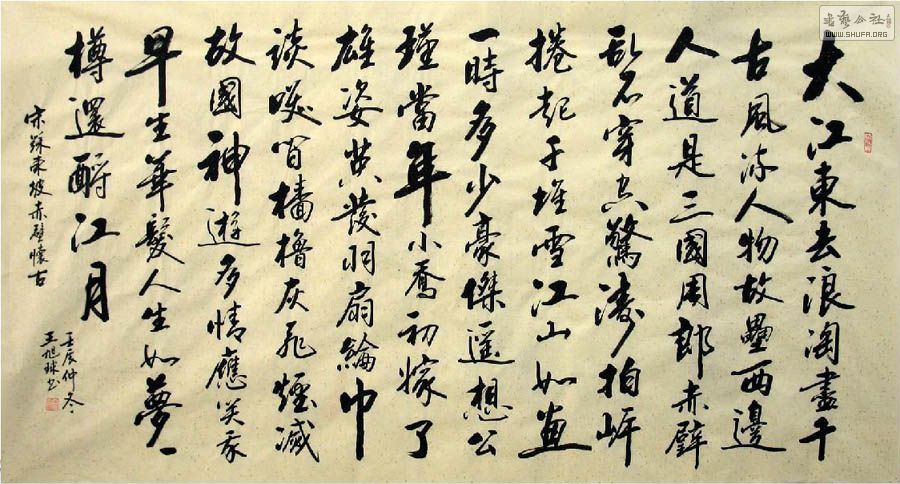 大江東去浪淘盡千
古風流人物故壘西邊
人道是三國周郎赤壁
乱石穿空驚濤拍岸
捲起千堆雪江山如畫
一時多少豪傑遥想公
瑾當年小喬初嫁了
雄姿英發羽扇綸巾
談笑间檣櫓灰飛煙滅
故國神遊多情應笑我
早生華髮人生如夢一
樽還酹江月
宋蘇東坡赤壁懷古
壬辰仲冬
王旭珠书
書藝公社
WWW.SHUFA.ORG